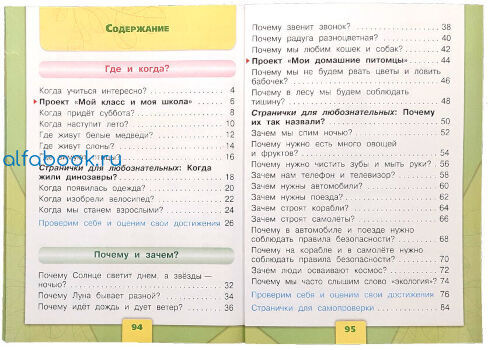 СОДЕРЖАНИЕ
Где и когда?
Когда учиться интересно? 4
Проект «Мой класс и моя школа» 6
Когда придёт суббота? 8
Когда наступит лето? 10
Где живут белые медведи? 12
Где живут слоны? 14
16
alfabook.ru
Странички для любознательных: Когда
жили динозавры? 18
Когда появилась одежда? 20
Когда изобрели велосипед? 22
Когда мы станем взрослыми? 24
Проверим себя и оценим свои достижения 26
Почему и зачем?
Почему Солнце светит днем, а звёзды —
ночью? 32
Почему Луна бывает разной? 34
Почему идёт дождь и дует ветер? 36
94
Почему звенит звонок? 38
Почему радуга разноцветная? 40
Почему мы любим кошек и собак? 42
Проект «Мои домашние питомцы» 44
Почему мы не будем рвать цветы и ловить
бабочек? 46
Почему в лесу мы будем соблюдать
тишину? 48
Странички для любознательных: Почему
их так назвали? 50
Зачем мы спим ночью? 52
Почему нужно есть много овощей
и фруктов? 54
Почему нужно чистить зубы и мыть руки? 56
Зачем нам телефон и телевизор? 58
Зачем нужны автомобили? 60
Зачем нужны поезда? 62
Зачем строят корабли? 64
Зачем строят самолёты? 66
Почему в автомобиле и поезде нужно
соблюдать правила безопасности? 68
Почему на корабле и в самолёте нужно
соблюдать правила безопасности? 70
Зачем люди осваивают космос? 72
Почему мы часто слышим слово «экология»? 74
Проверим себя и оценим свои достижения 76
Странички для самопроверки 84
95